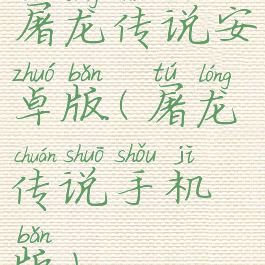 屠龙传说安
zhuó bǎn tú lóng
卓版(屠龙
chuán shuō shǒu jī
传说手机
bǎn
版)